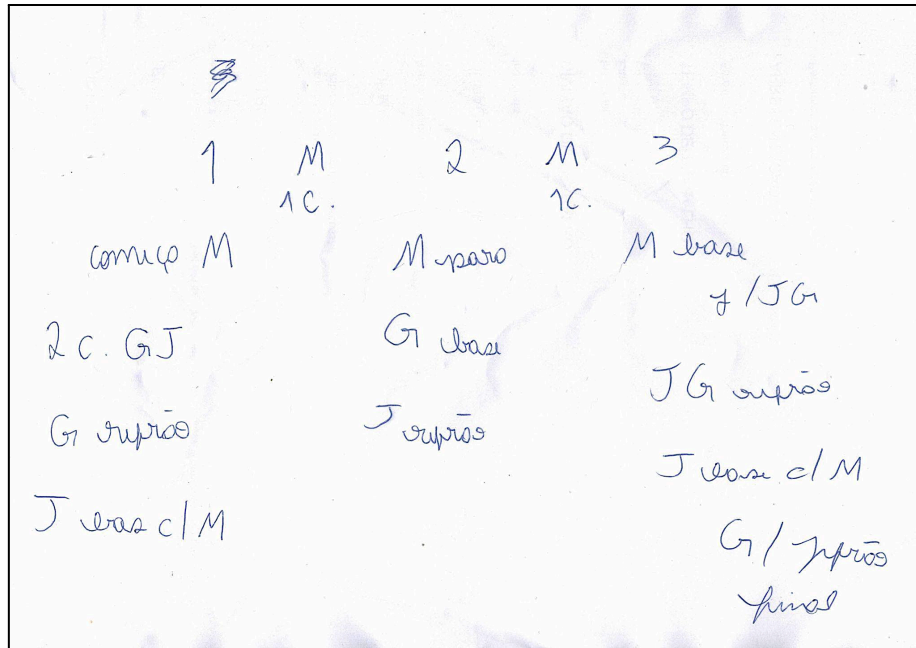 1 M 2 M 3
1C. 1C.
começo M
2 c. GJ
G refrão
J base c/ M
M paro
G base
J refrão
M base
p/ JG
JG refrão
J base c/ M
G / refrão
final